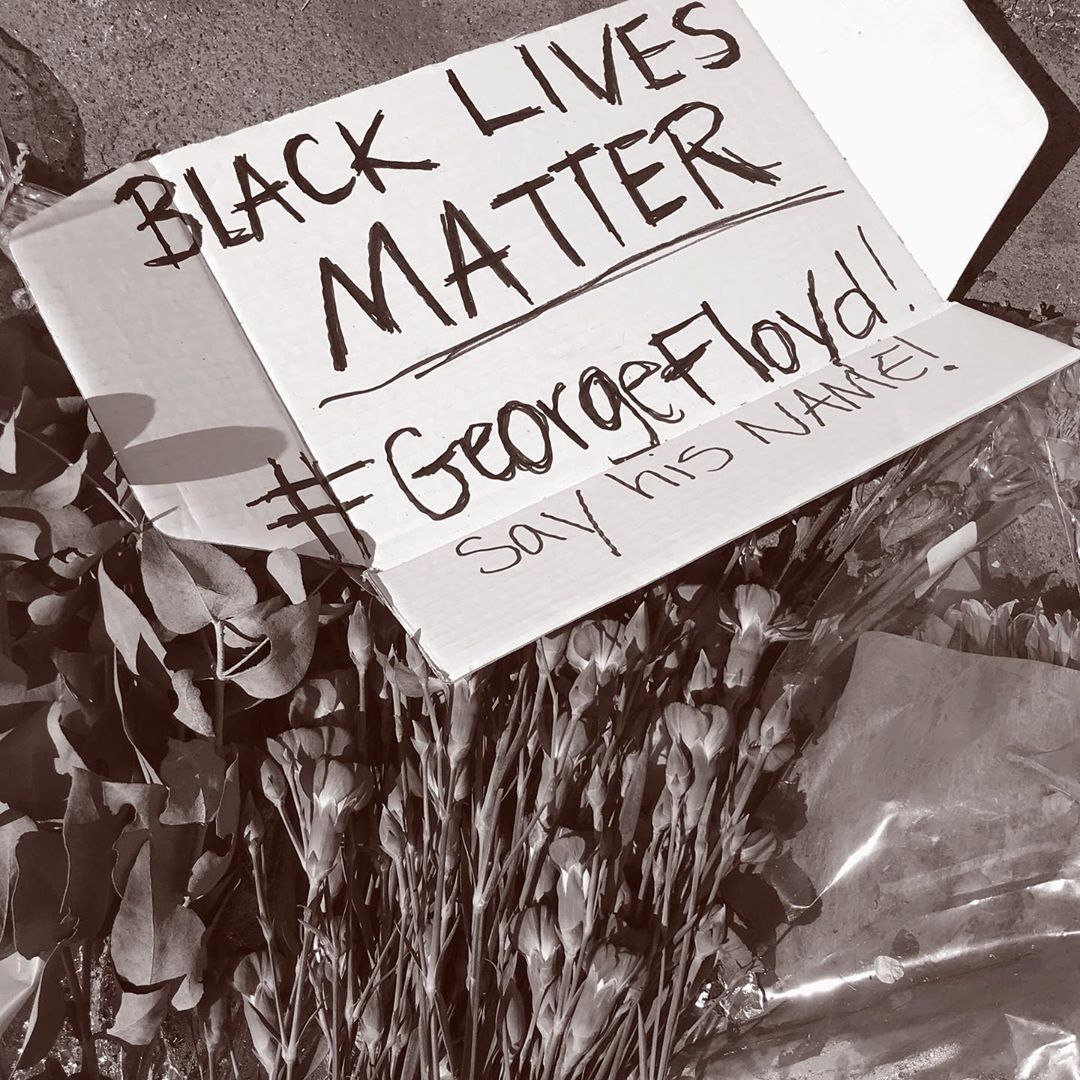 BLACK LIVES
MATTER
#GeorgeFloyd!
say his NAME!